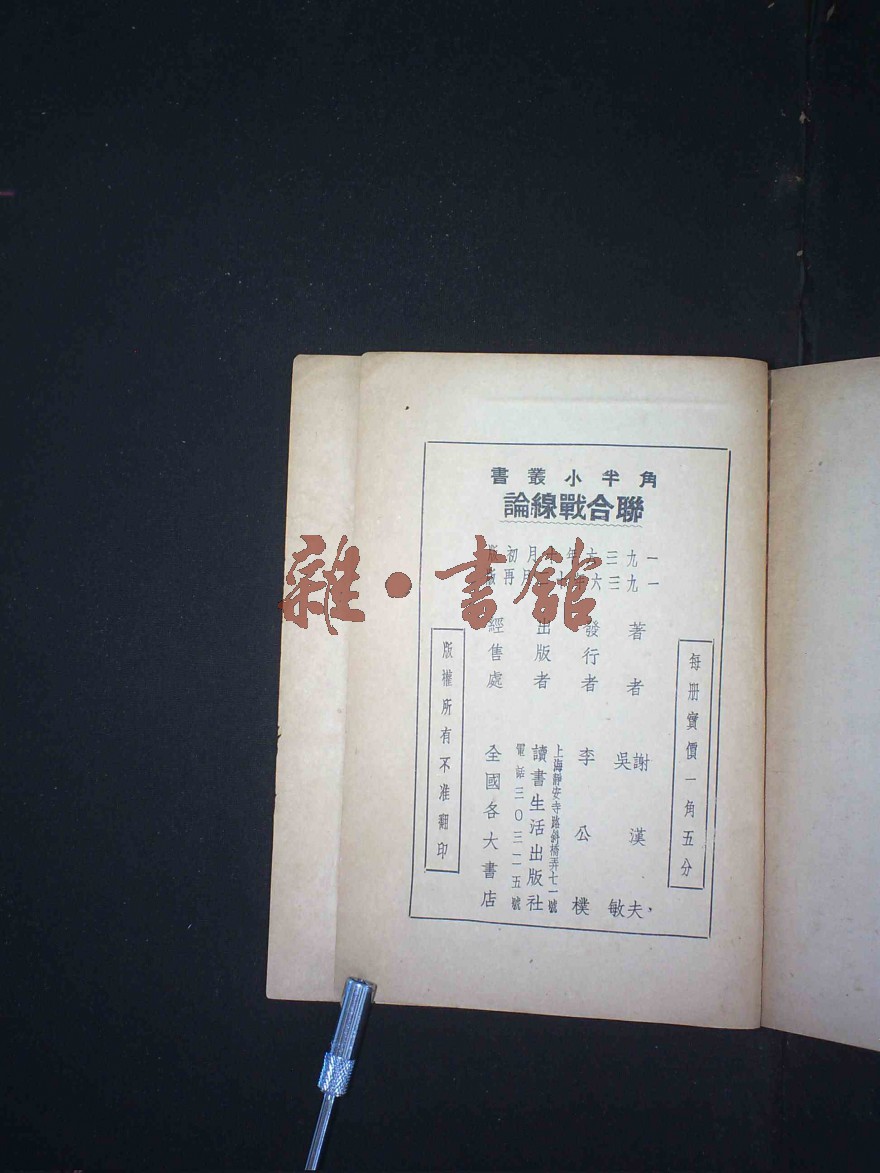 角半小叢書
聯合戰線論
一九三六年十月初版
一九三六年十月再版
每册實價一角五分
著者 謝漢夫, 吳敏
發行者 李公樸
出版者 上海靜安寺路斜橋弄七一號
讀書生活出版社
電話三〇三一五號
經售處 全國各大書店
版權所有不准翻印
雜·書館